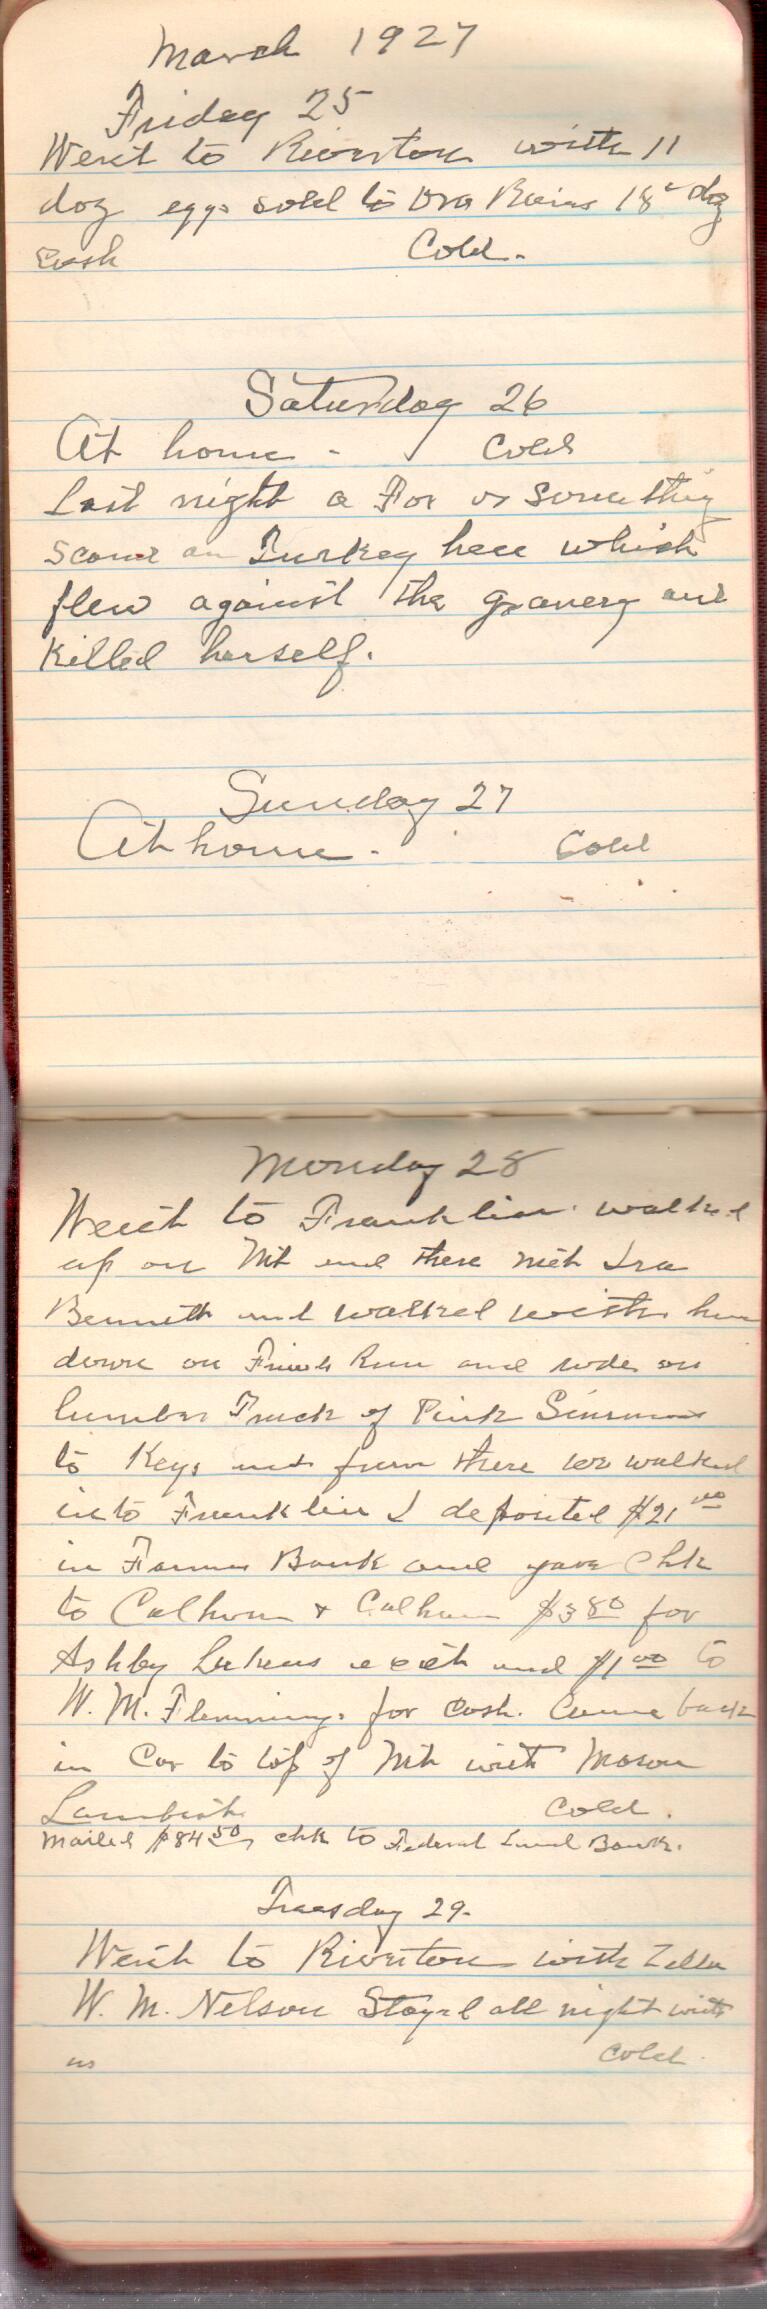 March 1927
Friday 25
Went to Riverton with 11
doz eggs sold to Ora 18c doz
Cash Cold.
Saturday 26
At home - Cold
Last night a Fox or Something
an Turkey hen which
flew against the granery and
Killed herself.
Sunday 27
At home. Cold
Monday 28
Went to Franklin walked
up on Mt and there met Ira
Bennett and walked with him
down on Run and rode on
lumber Truck of Pink Simmons
to Keys and from there we walked
into Franklin I deposited $21.00
in Farmers Bank and gave Chk
to Calhoun & Calhoun $3.80 for
Ashby and $1.00 to
W. M. Flemmings for Cash. Came back
in Car to top of Mt with Mason
Lambert Cold.
Mailed $84.50 chk to Federal Land Bank.
Tuesday 29.
Went to Riverton with Zella
W. M. Nelson Stayed all night with
us Cold.